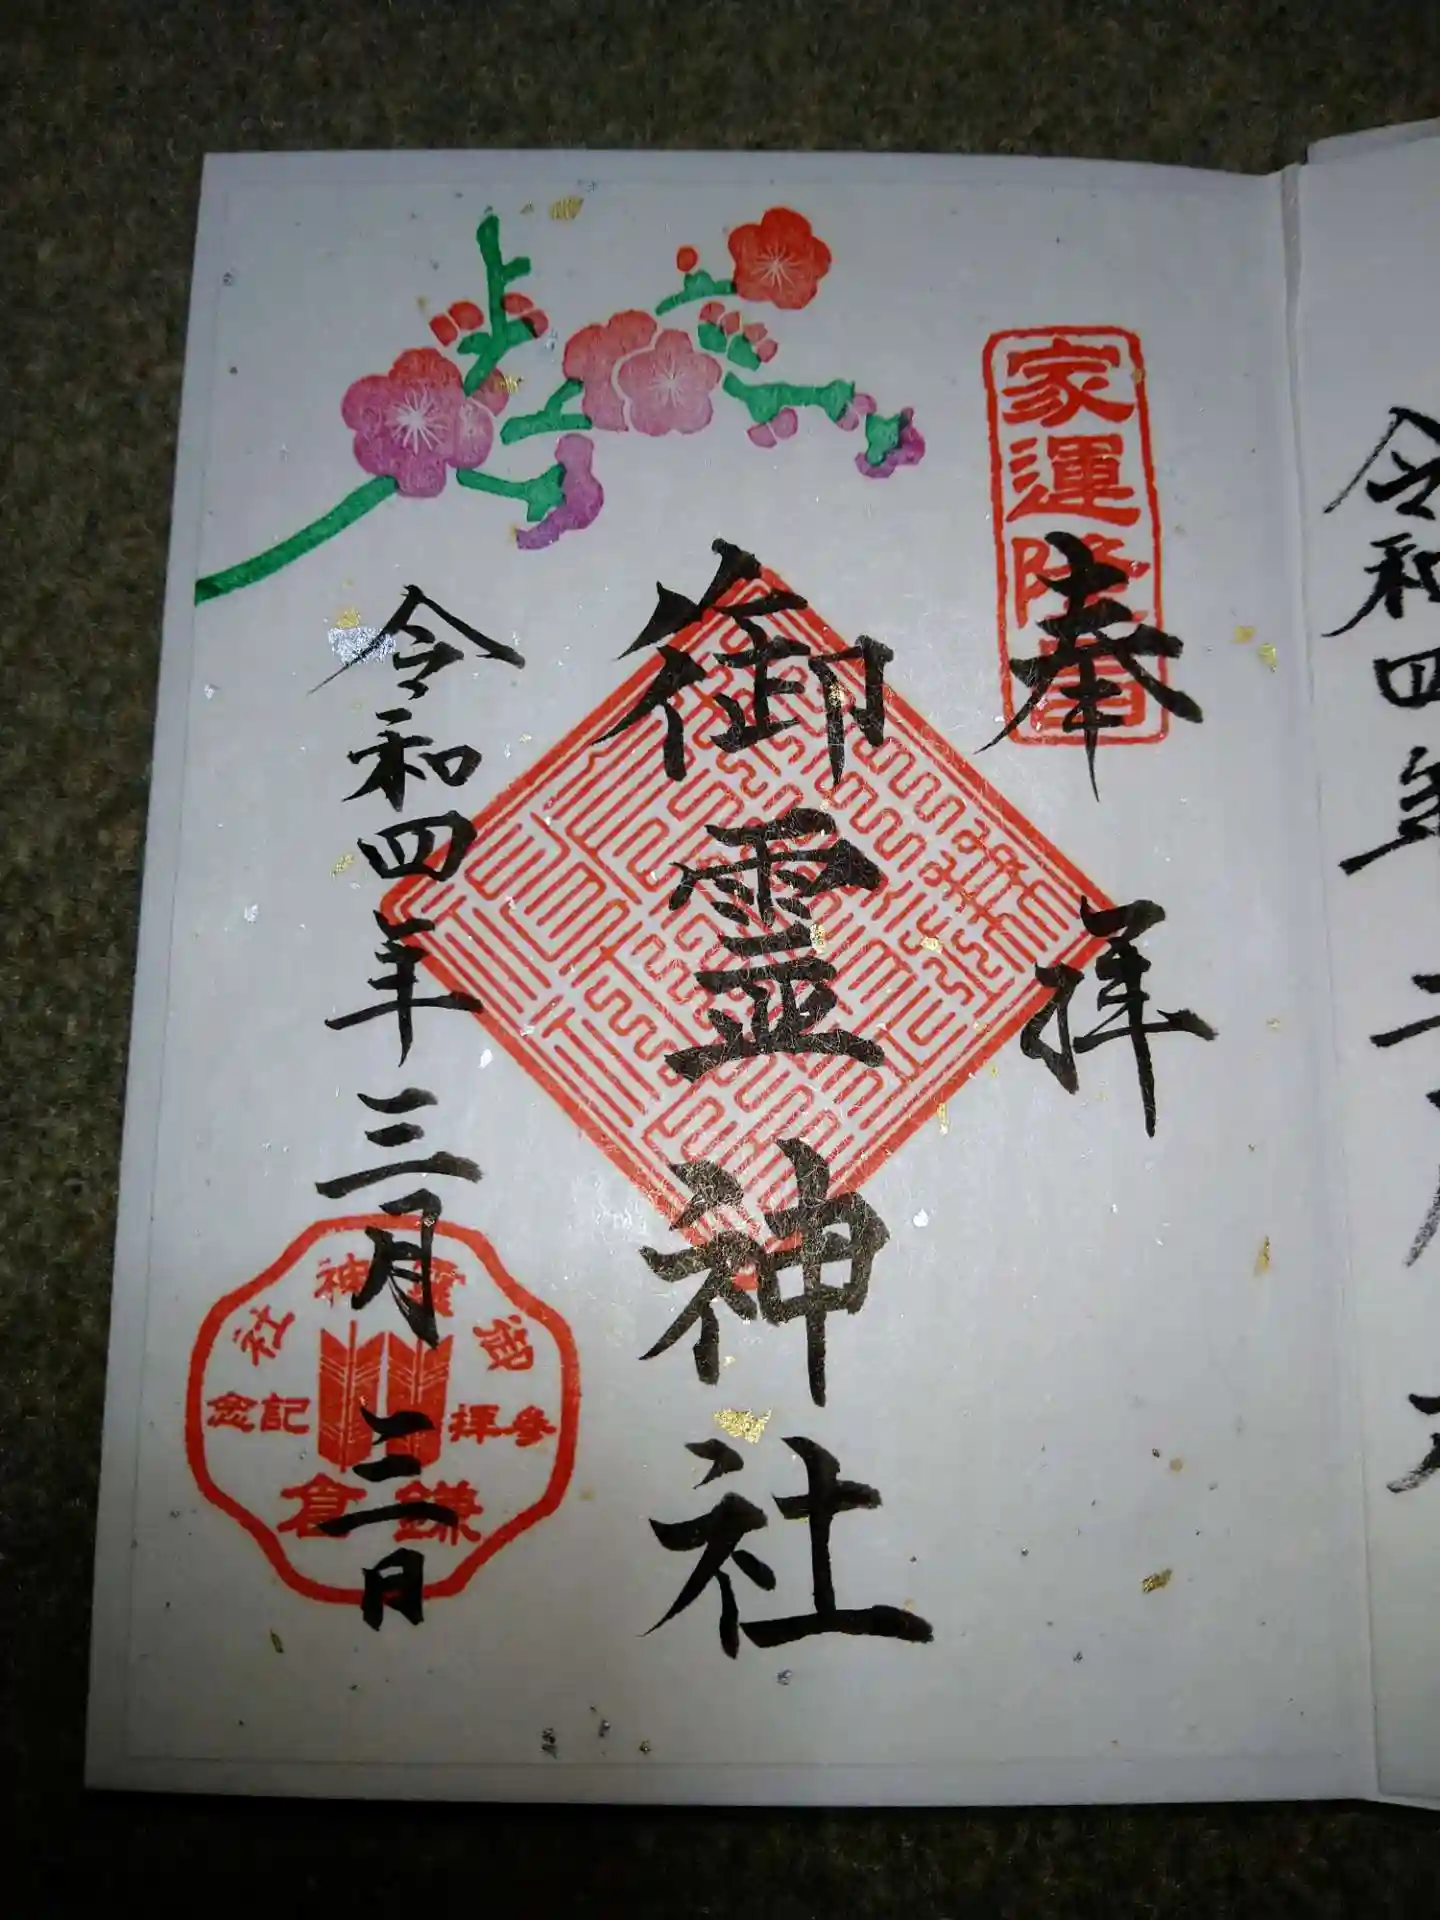 家運隆昌
奉拝
御霊神社
令和四年三月二日
御霊神社
参拝記念
鎌倉
令和四年二